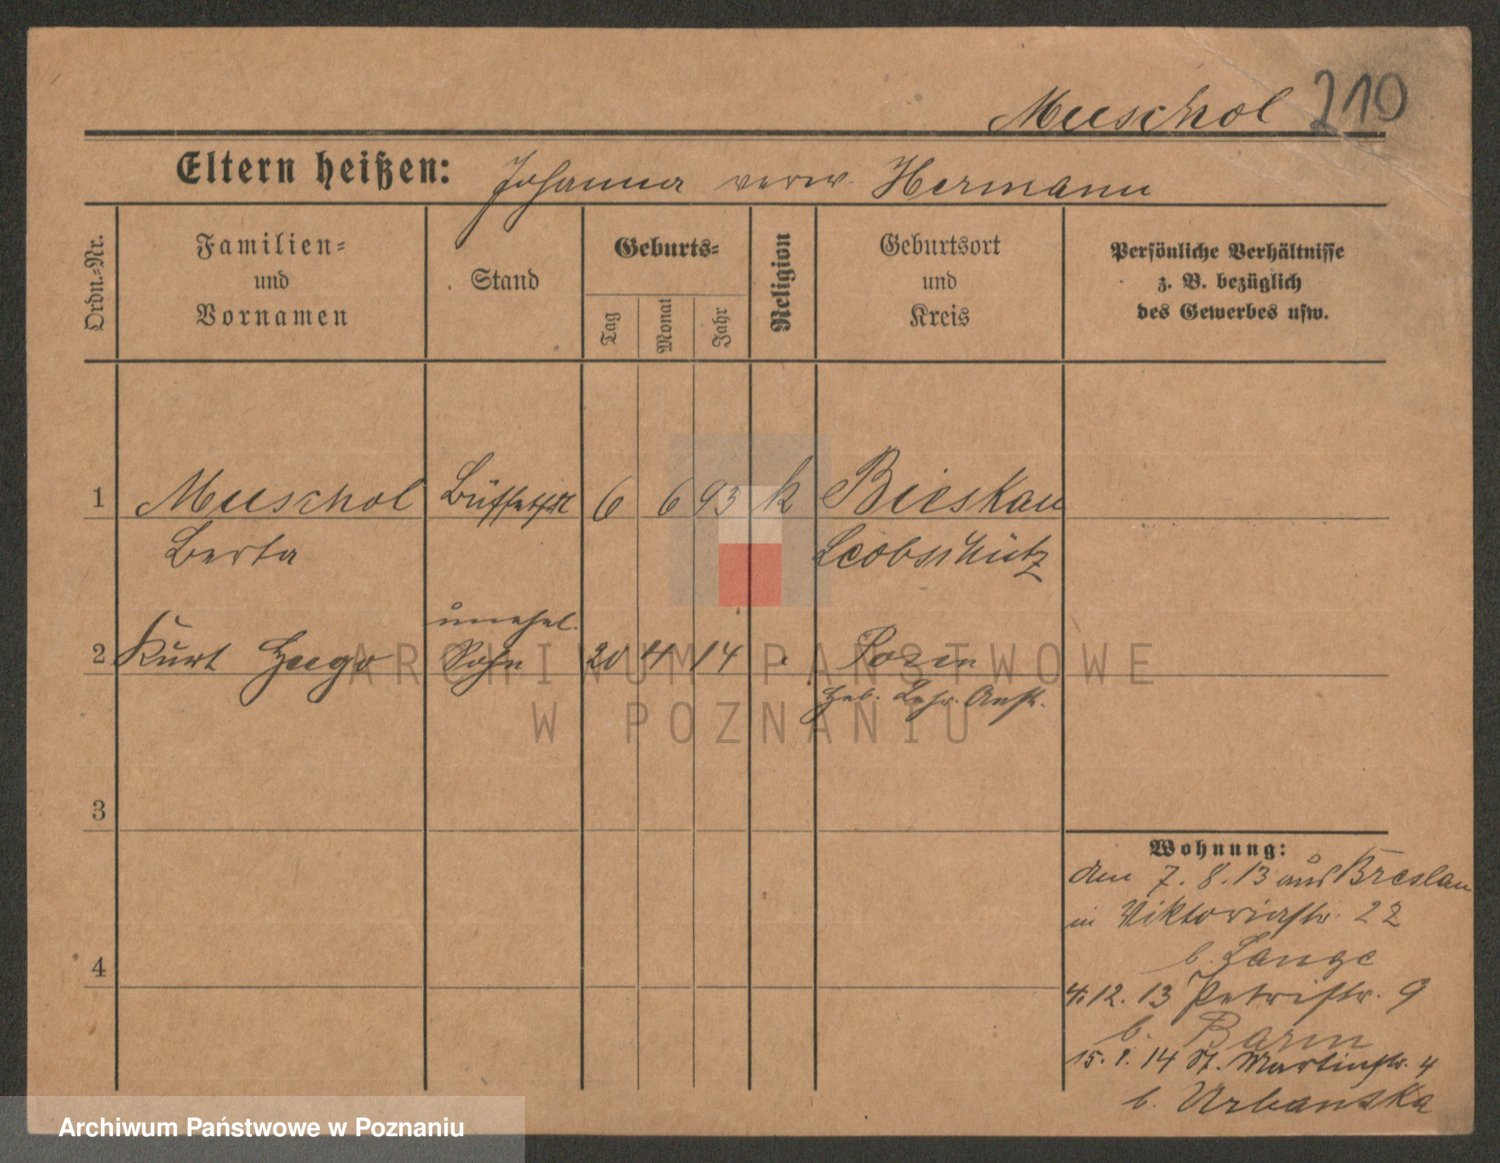 Muschol 210
Eltern heißen: Johanna verw. Hermann
Ordn.-Nr.
Familien-
und
Vornamen
Stand
Geburts-
Tag
Monat
Jahr
Religion
Geburtsort
und
Kreis
Persönliche Verhältnisse
z. B. bezüglich
des Gewerbes usw.
1 Muschol 6 6 93 k Bieskau
Berta Leobschütz
unehel.
2 Kurt Hugo Sohn 20 4 14 Posen
Heb. Lehr. Anst.
3
4
Wohnung:
den 7. 8. 13 aus Breslau
in Viktoriastr. 22
b. Lange
4. 12. 13 Petristr. 9
b.
15. 1. 14 St. Martinstr. 4
b. Urbanska
ARCHIWUM PAŃSTWOWE
W POZNANIU
Archiwum Państwowe w Poznaniu